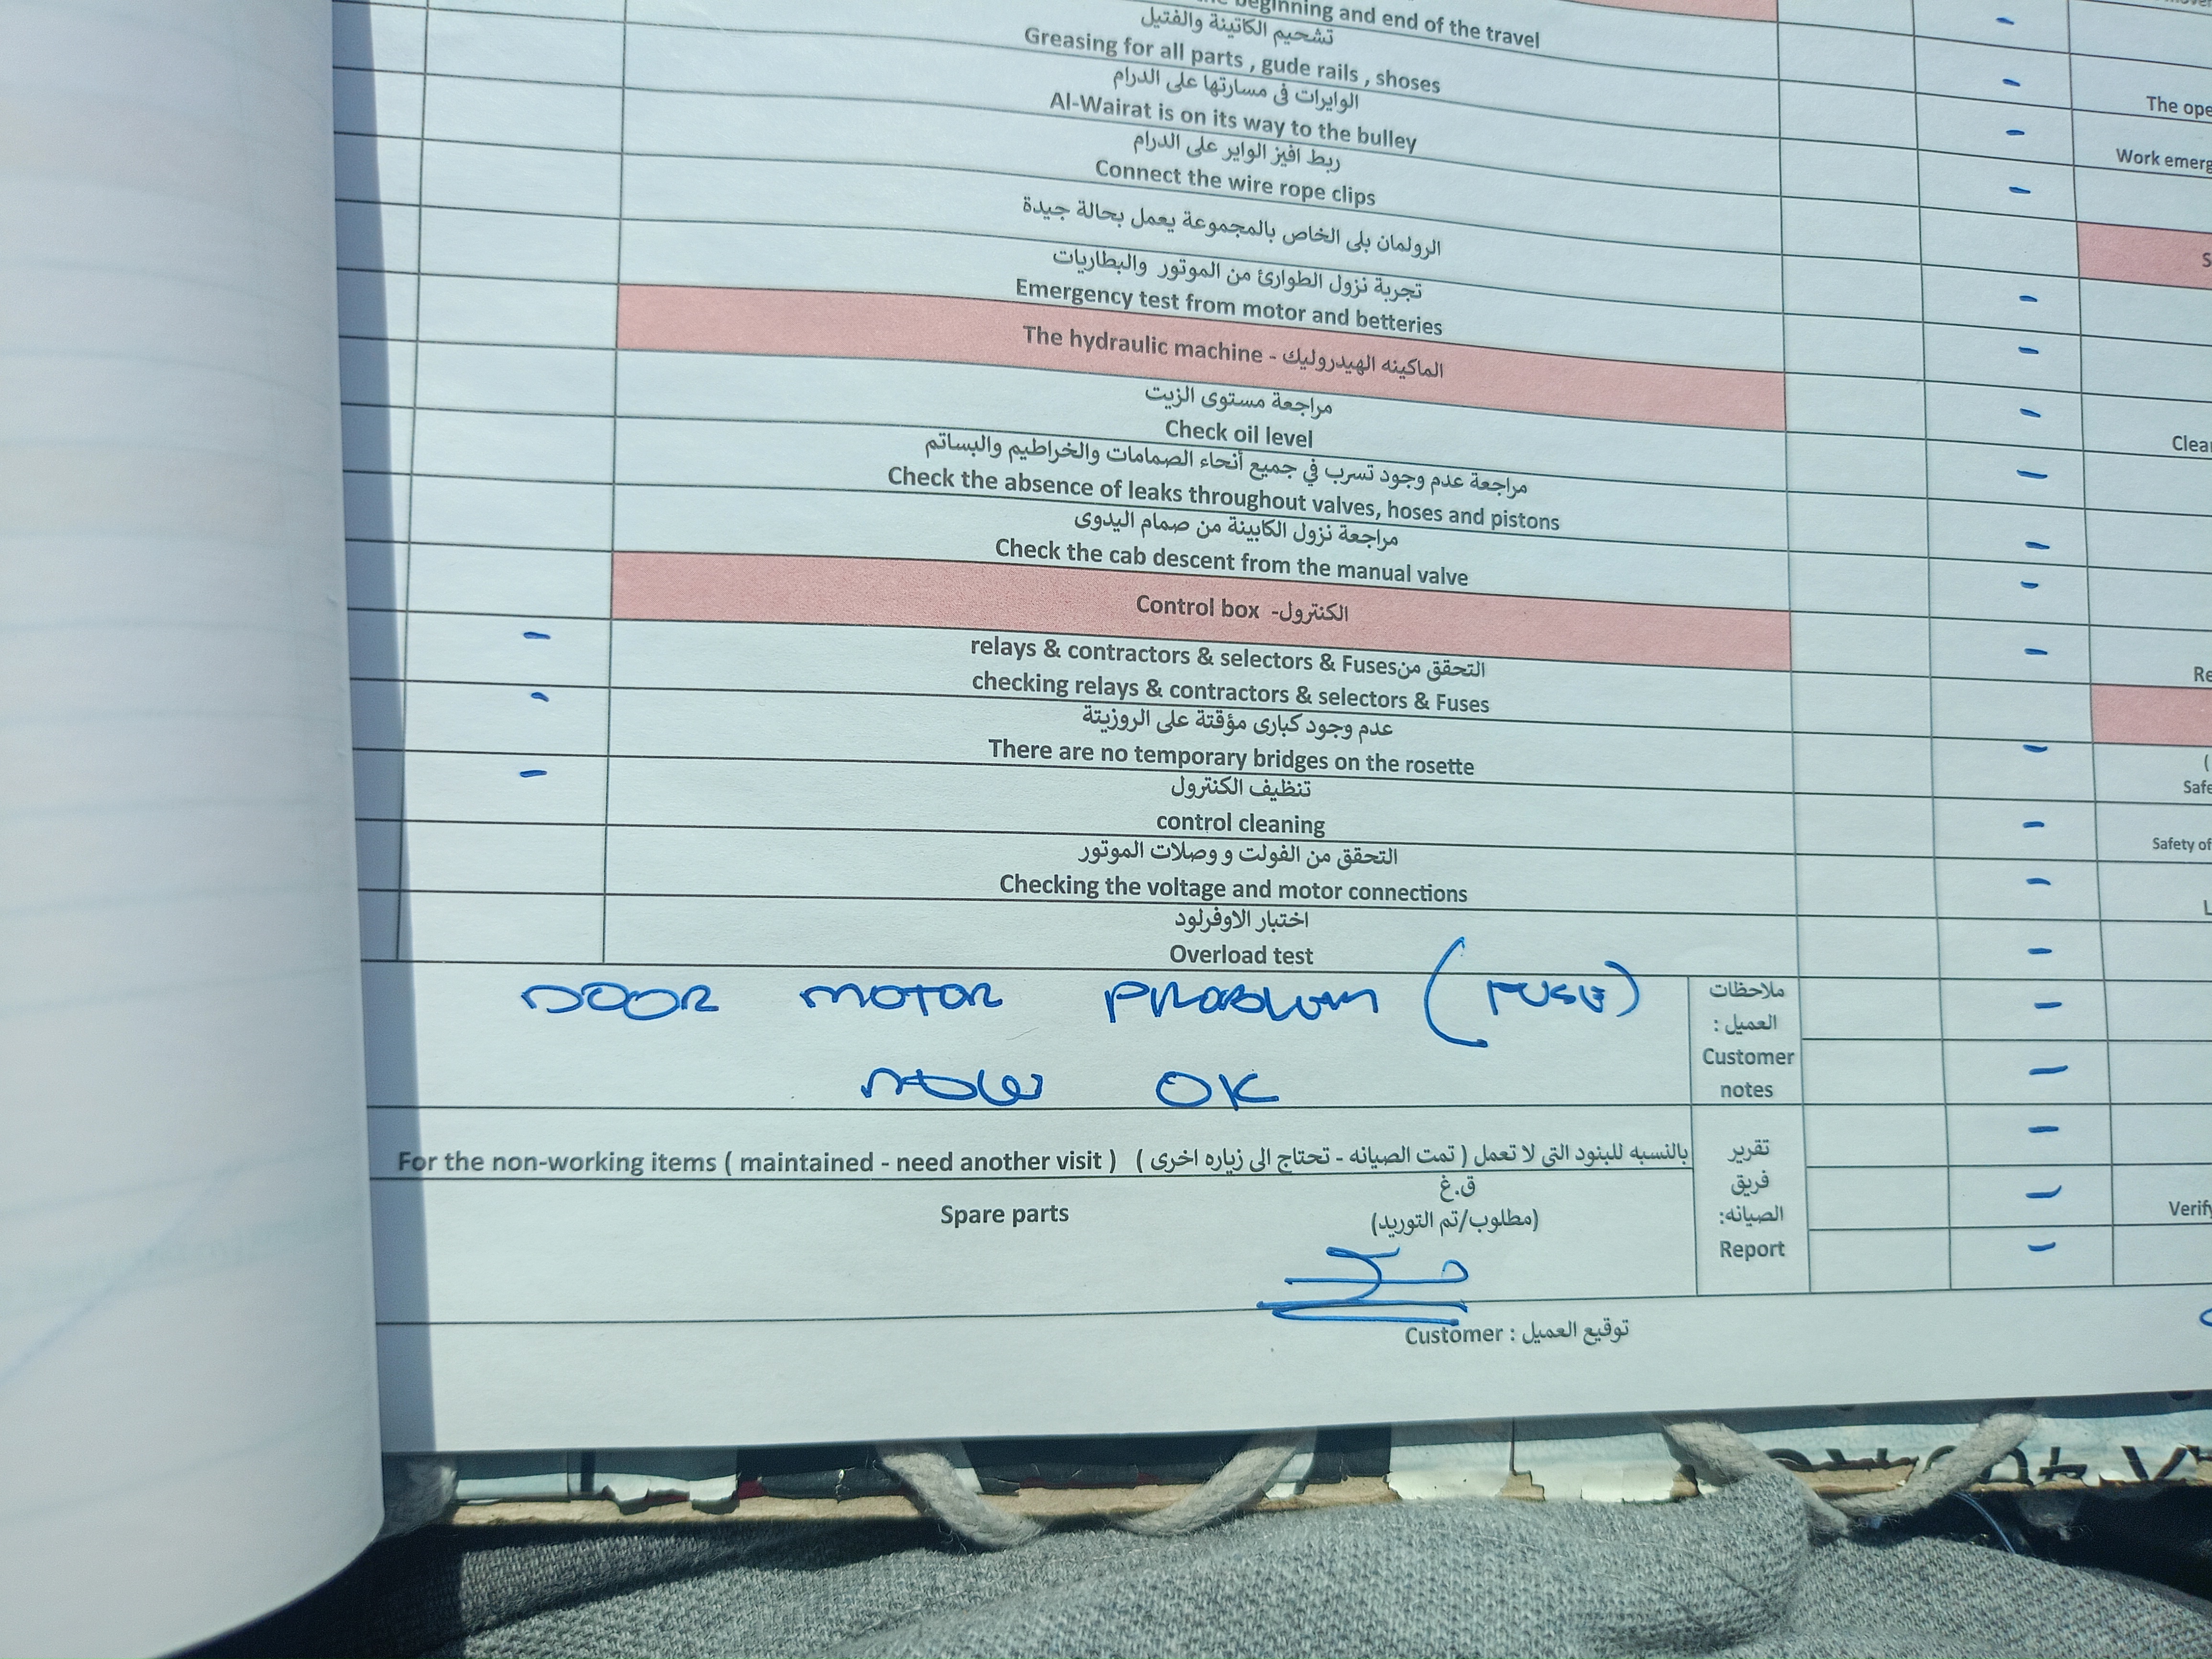 beginning and end of the travel
تشحيم الكاتينة والفتيل
Greasing for all parts , gude rails , shoses
الوايرات فى مسارتها على الدرام
Al-Wairat is on its way to the bulley
ربط افيز الواير على الدرام
Connect the wire rope clips
الرولمان بلى الخاص بالمجموعة يعمل بحالة جيدة
تجربة نزول الطوارئ من الموتور والبطاريات
Emergency test from motor and betteries
The hydraulic machine - الماكينه الهيدروليك
مراجعة مستوى الزيت
Check oil level
مراجعة عدم وجود تسرب في جميع أنحاء الصمامات والخراطيم والبساتم
Check the absence of leaks throughout valves, hoses and pistons
مراجعة نزول الكابينة من صمام اليدوى
Check the cab descent from the manual valve
Control box -الكنترول
relays & contractors & selectors & Fusesالتحقق من
checking relays & contractors & selectors & Fuses
عدم وجود كبارى مؤقتة على الروزيتة
There are no temporary bridges on the rosette
تنظيف الكنترول
control cleaning
التحقق من الفولت و وصلات الموتور
Checking the voltage and motor connections
اختبار الاوفرلود
Overload test
DOOR MOTOR PROBLEM (FUSE)
NOW OK
ملاحظات
العميل :
Customer
notes
For the non-working items ( maintained - need another visit ) بالنسبه للبنود التى لا تعمل ( تمت الصيانه - تحتاج الى زياره اخرى )
ق.غ
Spare parts (مطلوب/تم التوريد)
تقرير
فريق
الصيانه:
Report
Customer : توقيع العميل
The ope
Work emerg
Clea
Re
Safe
Safety of
Verify